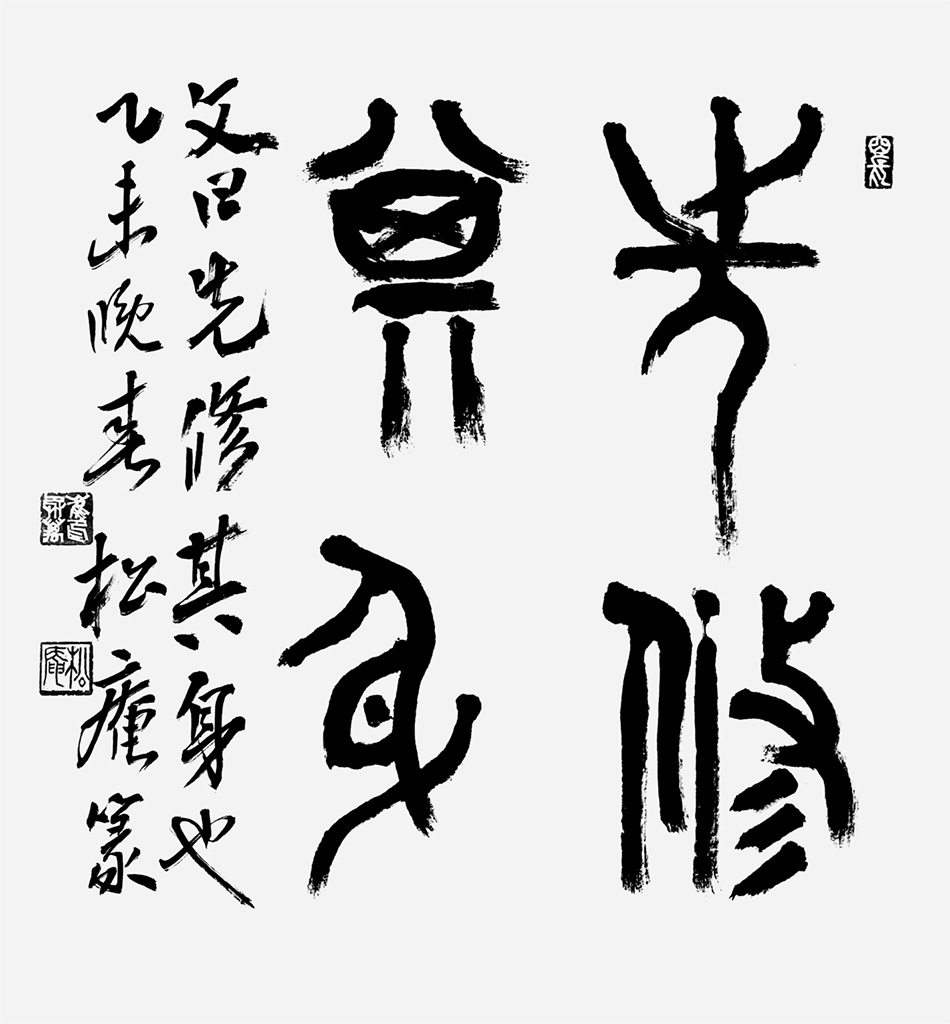 先修
其身
文曰先修其身也
乙未晚春松庵篆
松庵